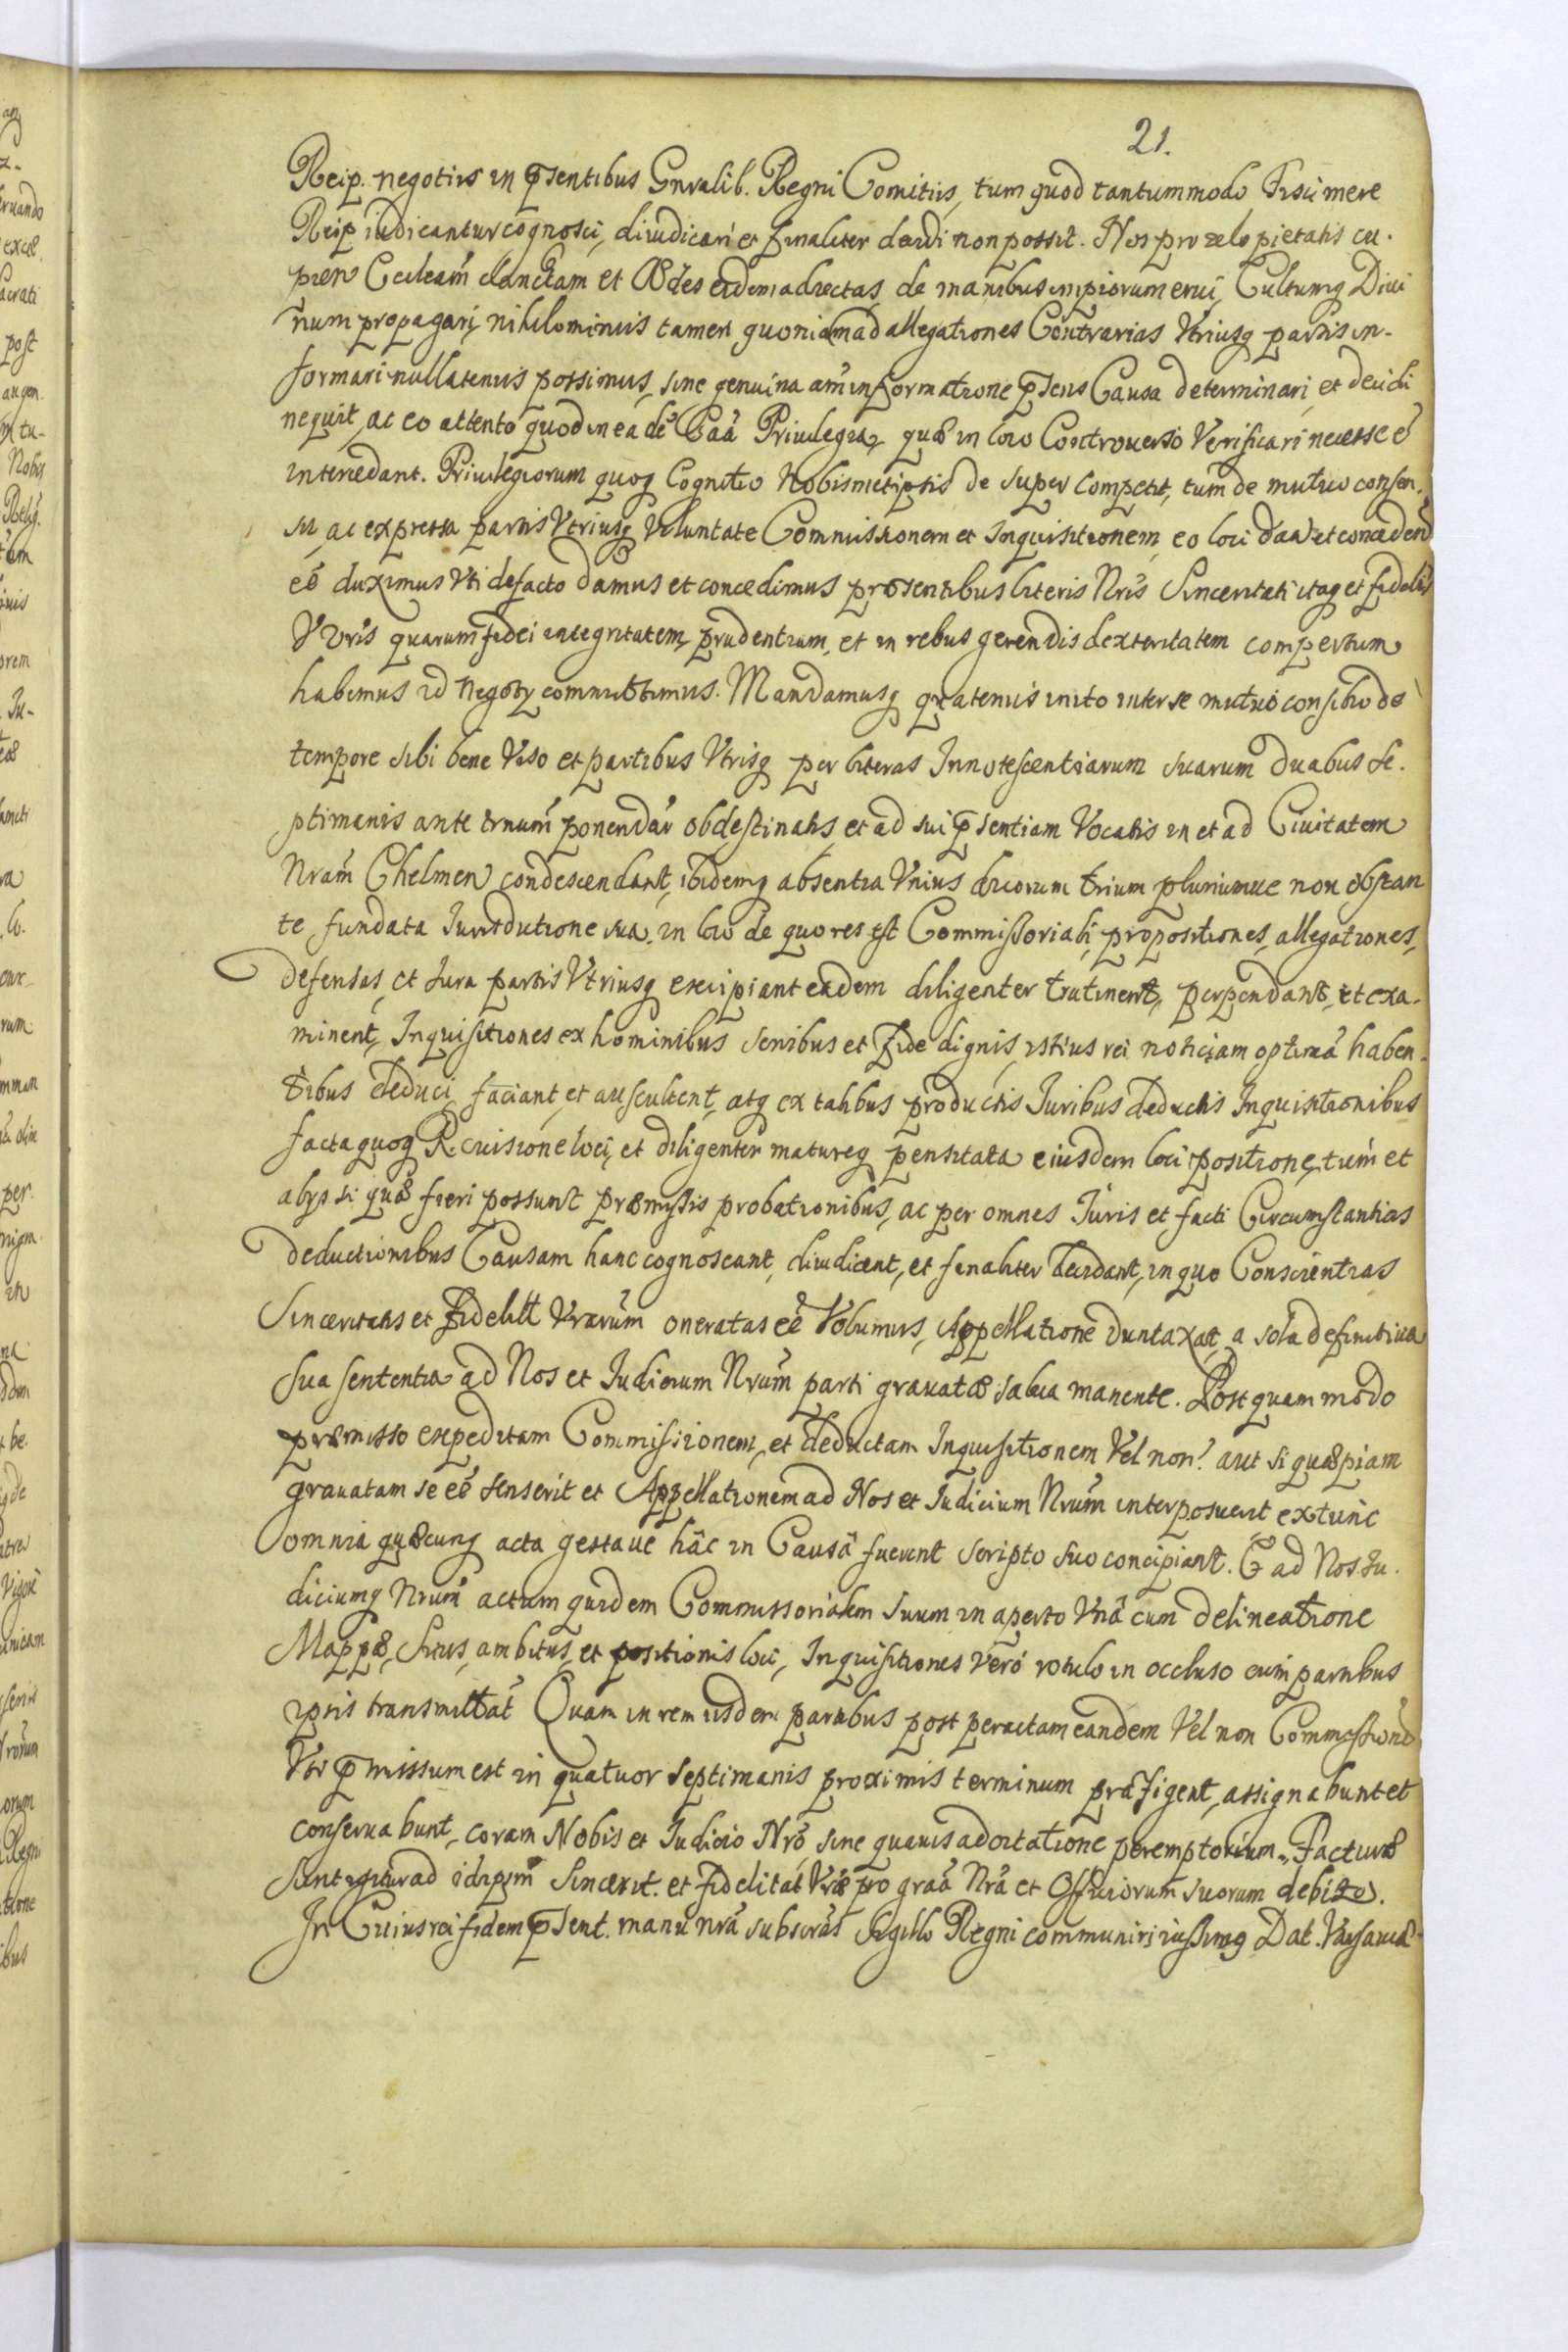 21.
Reip. negotiis in p̄sentibus Gnralib. Regni Comitiis, tum quod tantummodo Fisci mere
Reip iudicantur cognosci, diiudicari et finaliter decidi non possit. Nos pro zelo pietatis cu-
pien Eccleam Sanctam et Ædes eidem adiectas, de manibus impiorum erui, Cultumq Divi
num propagari, nihilominus tamen quoniam ad allegationes Contrarias Vtriusq partis in-
formari nullatenus possimus, sine genuina am̄ informatione p̄sens Causa determinari et decidi
nequit, ac eo attento quod in ea dē Caā Priuilegia, quæ in loco Controuerso Verificari necesse ē
intercedant. Priuilegiorum quoq Cognitio Nobismetipsis de super competit, tum de mutuo consen-
su, ac expressa partis Vtriusq Voluntate Commissionem et Inquisitionem, eo loci dan et conceden
eē duximus Vti defacto damus et concedimus præsentibus literis Nris Sinceritati itaq et fidelit
V Vris quarum fidei integritatem, prudentiam, et in rebus gerendis dexteritatem compertum
habemus id Negoty committimus. Mandamusq quatenus inito inter se mutuo consilio de
tempore sibi bene Viso et partibus Vtrisq per literas Innotescentiarum suarum duabus Se-
ptimanis ante trnum ponendar obdestinatis, et ad sui p̄sentiam Vocatis in et ad Ciuitatem
Nram Chelmen condescendant, ibidemq absentia Vnius duorum trium pluriumue non obstan
te fundata Iurisdictione sua, in loco de quo res est Commissoriali, propositiones, allegationes,
defensas, et Iura partis Vtriusq excipiant eadem diligenter trutinent, perpendant, et exa-
minent, Inquisitiones ex hominibus senibus et fide dignis, istius rei noticiam optimā haben-
tibus deduci, faciant, et auscultent, atq ex talibus productis Iuribus deductis Inquisitionibus
facta quoq Reuisione loci, et diligenter matureq pensitata eiusdem loci positione, tum et
alys si quæ fieri possunt præmissis probationibus, ac per omnes Iuris et facti Circumstantias
deductionibus Causam hanc cognoscant, diiudicent, et finaliter decidant, in quo Conscientias
Sinceritatis et Fidelitt Vrarum oneratas eē Volumus, Appellatione duntaxat, a sola definitiua
sua sententia ad Nos et Iudicium Nrum parti grauatæ salua manente. Postquam modo
præmisso expeditam Commissionem, et deductam Inquisitionem Vel non? aut si quæpiam
grauatam se eē senserit et Appellationem ad Nos et Iudicium Nrum interposuerit extunc
omnia quæcunq acta gestaue hâc in Causâ fuerint scripto suo concipiant. & ad Nos Iu-
diciumq Nrum actum quidem Commissorialem suum in aperto Vnâ cum delineatione
Mappæ, Situs, ambitus, et positionis loci, Inquisitiones verò rotulo in occluso cum partibus
ipsis transmittāt Quam in rem iisdem partibus post peractam eandem Vel non Commissionē
Vt p̄missum est in quatuor septimanis proximis terminum præfigent, assignabunt et
conseruabunt, coram Nobis et Iudicio Nrō, sine quauis adcitatione peremptorium. Facturæ
sunt igitur ad idipsm Sincerit. et fidelitat Vræ pro graā Nrā et Officiorum suorum debito.
In Cuius rei fidem p̄sent. manu nrā subscrās Sigillo Regni communiri iussimq Dat. Varsauiæ